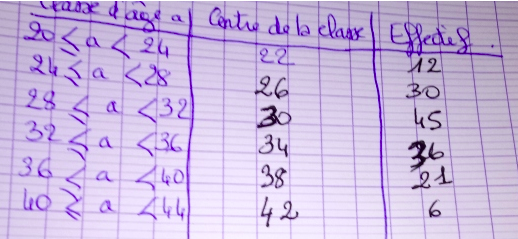 Classe d'âge a Centre de la classe Effectif.
20 ≤ a < 24 22 12
24 ≤ a < 28 26 30
28 ≤ a < 32 30 45
32 ≤ a < 36 34 36
36 ≤ a < 40 38 21
40 ≥ a < 44 42 6